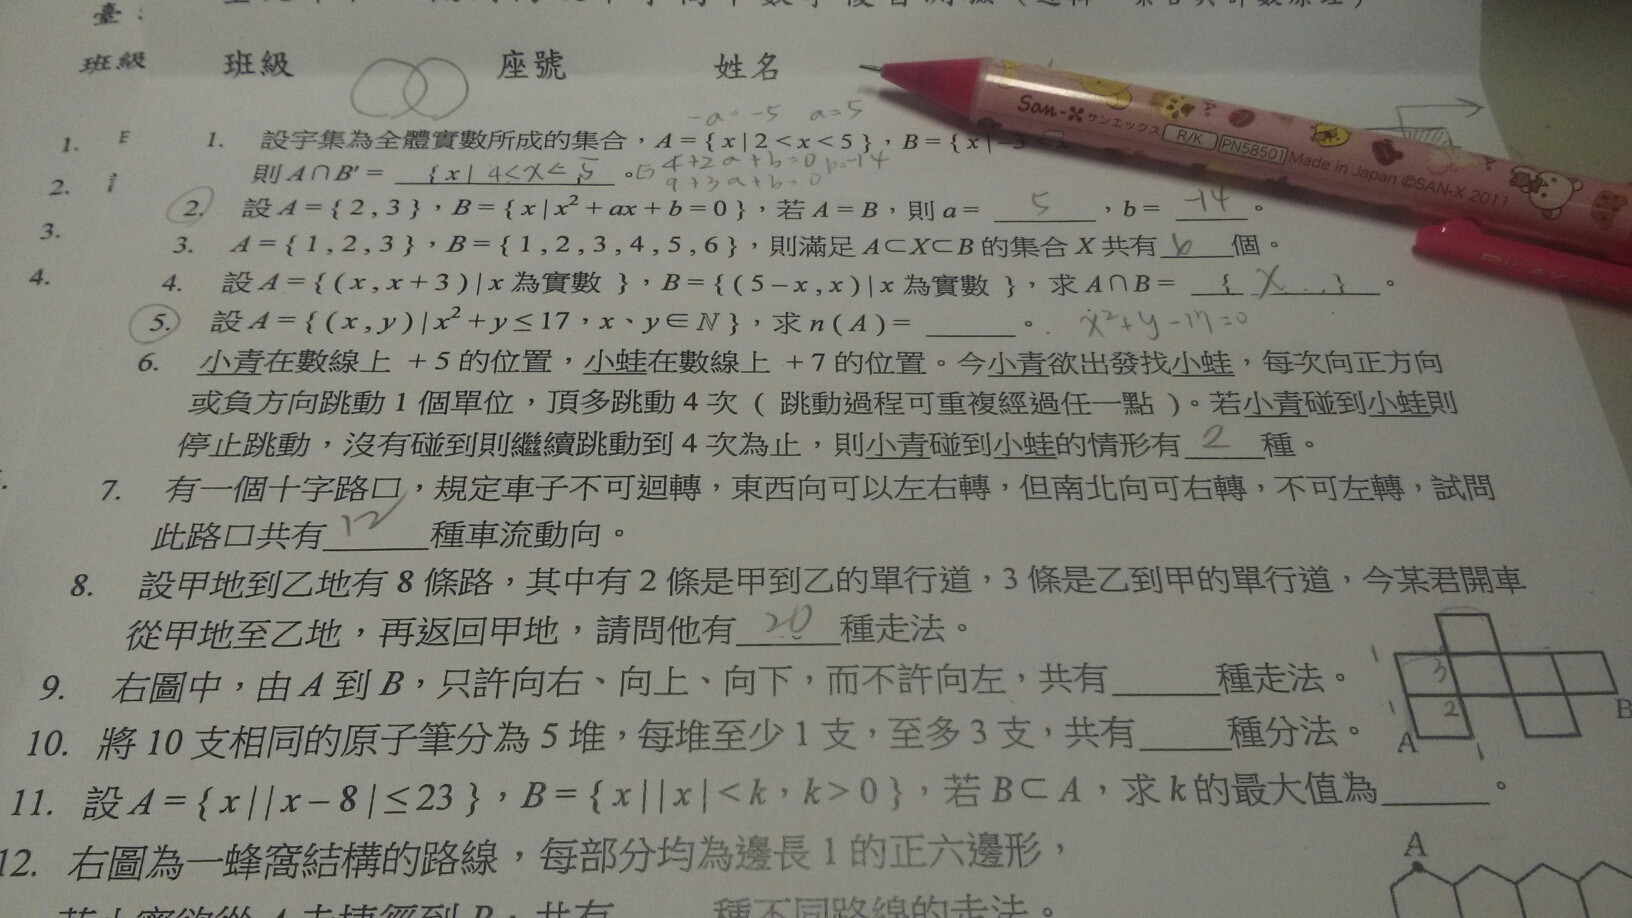 臺:
班級
班級 座號 姓名
San-X サンエックス R/K PN58501 Made in Japan ©SAN-X 2011
-a=-5 a=5
1. 1. 設宇集為全體實數所成的集合,A={x|2<x<5},B={x|-3<
4+2a+b=0 b=-14
則A∩B′= {x|4<x≤5 。
9+3a+b=0
2. 2. 設A={2,3},B={x|x²+ax+b=0},若A=B,則a= 5 ,b= -14 。
3. 3. A={1,2,3},B={1,2,3,4,5,6},則滿足A⊂X⊂B的集合X共有 6 個。
4. 4. 設A={(x,x+3)|x為實數 },B={(5-x,x)|x為實數 },求A∩B= { X . . } 。
5. 設A={(x,y)|x²+y≤17,x、y∈N},求n(A)=______。 x²+y-17=0
6. 小青在數線上 +5的位置,小蛙在數線上 +7的位置。今小青欲出發找小蛙,每次向正方向
或負方向跳動1個單位,頂多跳動4次(跳動過程可重複經過任一點)。若小青碰到小蛙則
停止跳動,沒有碰到則繼續跳動到4次為止,則小青碰到小蛙的情形有 2 種。
7. 有一個十字路口,規定車子不可迴轉,東西向可以左右轉,但南北向可右轉,不可左轉,試問
此路口共有 12 種車流動向。
8. 設甲地到乙地有8條路,其中有2條是甲到乙的單行道,3條是乙到甲的單行道,今某君開車
從甲地至乙地,再返回甲地,請問他有 20 種走法。
9. 右圖中,由A到B,只許向右、向上、向下,而不許向左,共有______種走法。
1 3 1 2 A 1 B
10. 將10支相同的原子筆分為5堆,每堆至少1支,至多3支,共有_____種分法。
11. 設A={x||x-8|≤23},B={x||x|<k,k>0},若B⊂A,求k的最大值為______。
12. 右圖為一蜂窩結構的路線,每部分均為邊長1的正六邊形,
A
種不同路線的走法。